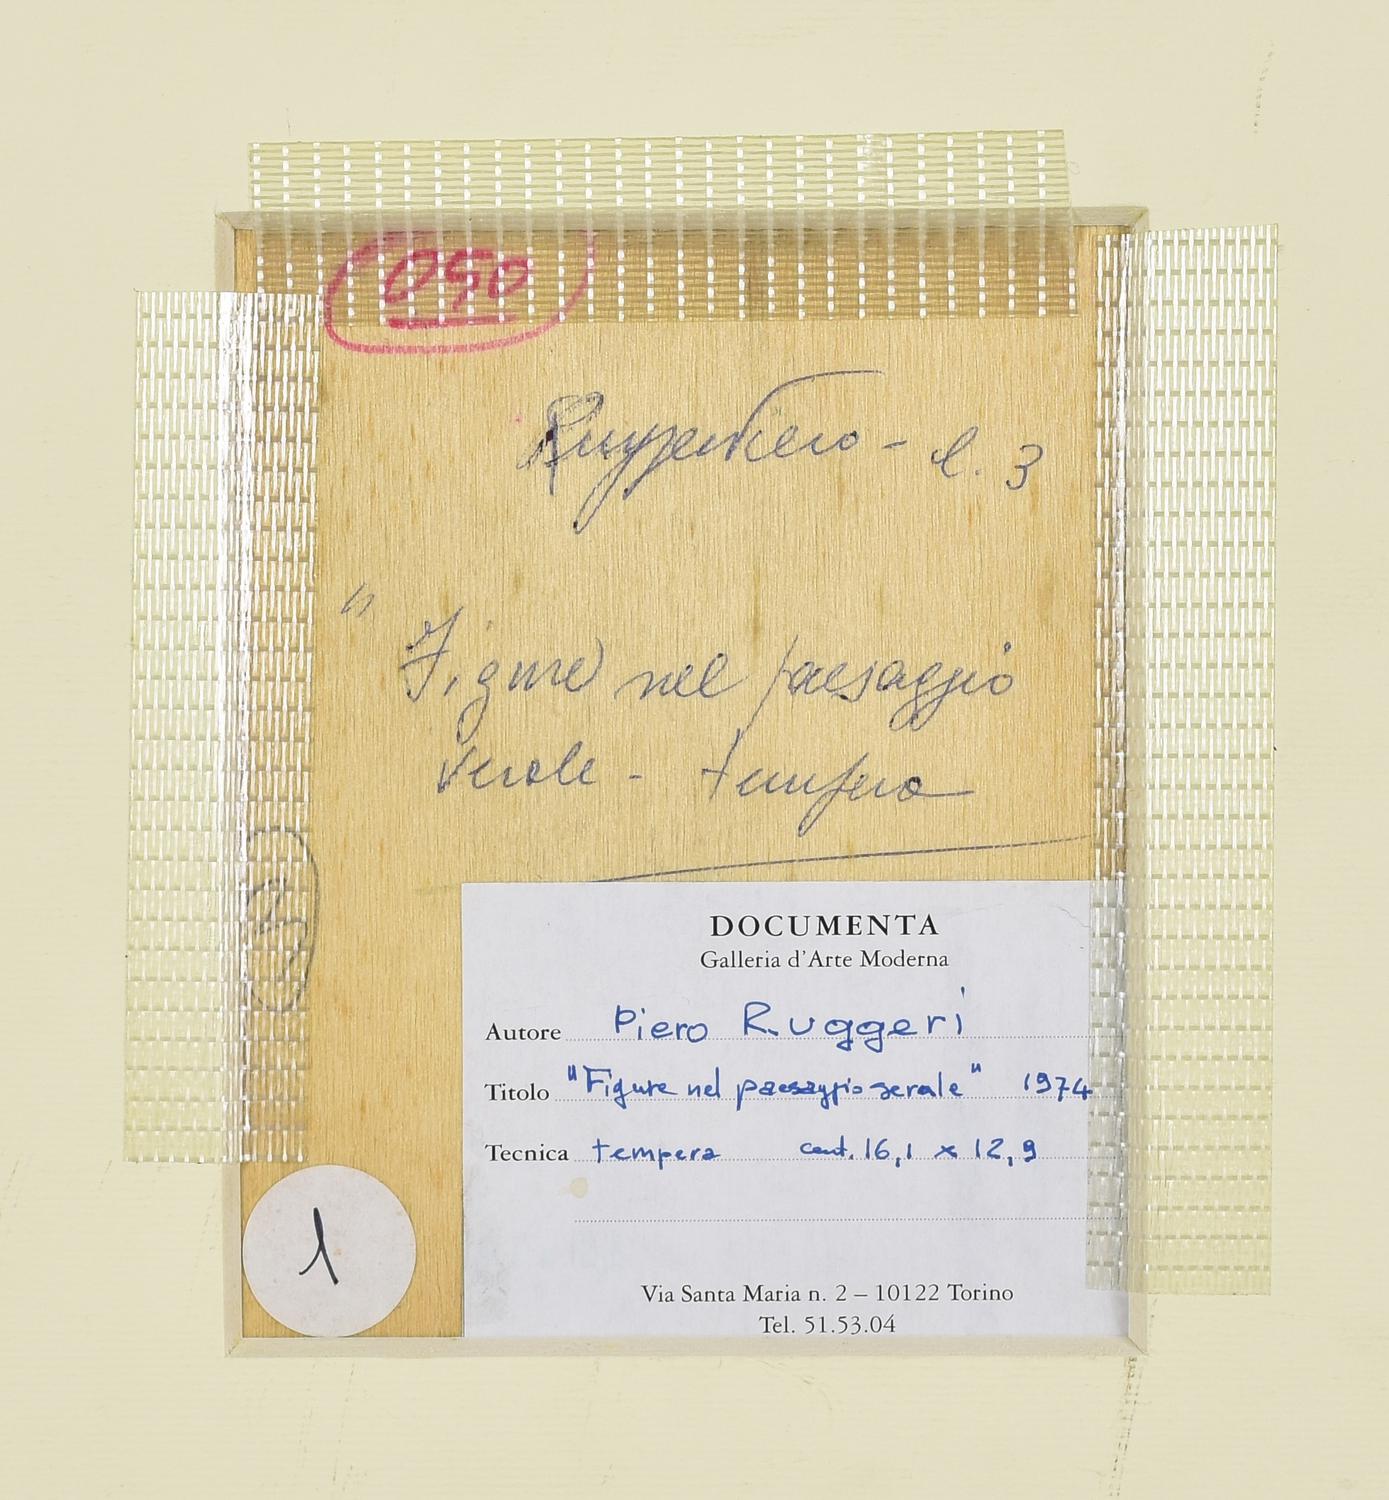 050
l. 3
"Figure nel paesaggio
serale - tempera
DOCUMENTA
Galleria d'Arte Moderna
Autore Piero Ruggeri
Titolo "Figure nel paesaggio serale" 1974
Tecnica tempera cent. 16,1 x 12,9
1
Via Santa Maria n. 2 – 10122 Torino
Tel. 51.53.04